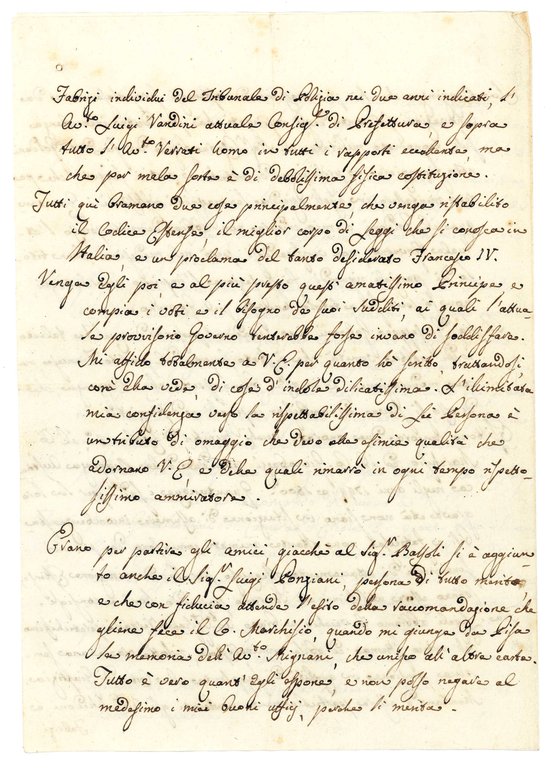 Fabrizi individui del Tribunale di Polizia nei due anni indicati, l'
Av.to Luigi Vandini attuale Consig.re di Prefettura, e sopra
tutto l'Av.to Verrati Uomo in tutti i rapporti eccellente, ma
che per mala sorte è di debolissima fisica costituzione.
Tutti quì bramano due cose principalmente, che venga ristabilito
il Codice Estense, il miglior corpo di Leggi che si conosca in
Italia, e un proclama del tanto desiderato Francesco IV.
Venga Egli poi, e al più presto quest'amatissimo Principe e
compia i voti e il bisogno de suoi Sudditi, ai quali l'attua-
le provvisorio Governo tenterebbe forse invano di soddisfare.
Mi affido totalmente a V.E. per quanto hò scritto, trattandosi,
com'ella vede, di cose d'indole dilicatissima. L'illimitata
mia confidenza verso la rispettabilissima di Lei Persona è
un tributo di omaggio che devo alle esimie qualità che
adornano V.E. e delle quali rimarrò in ogni tempo rispetto-
sissimo ammiratore.
Erano per partire gli amici giacchè al Sig.r Bassoli si è aggiun-
to anche il Sig.r Luigi Ponziani, persona di tutto merito,
e che con fiducia attende l'esito della raccomandazione che
gliene fece il C. Marchisio, quando mi giunge da Pisa
la memoria dell'Av.to Mignani, che unisco all'altre carte.
Tutto è vero quant'Egli espone, e non posso negare al
medesimo i miei buoni uffizj, perchè li merita.